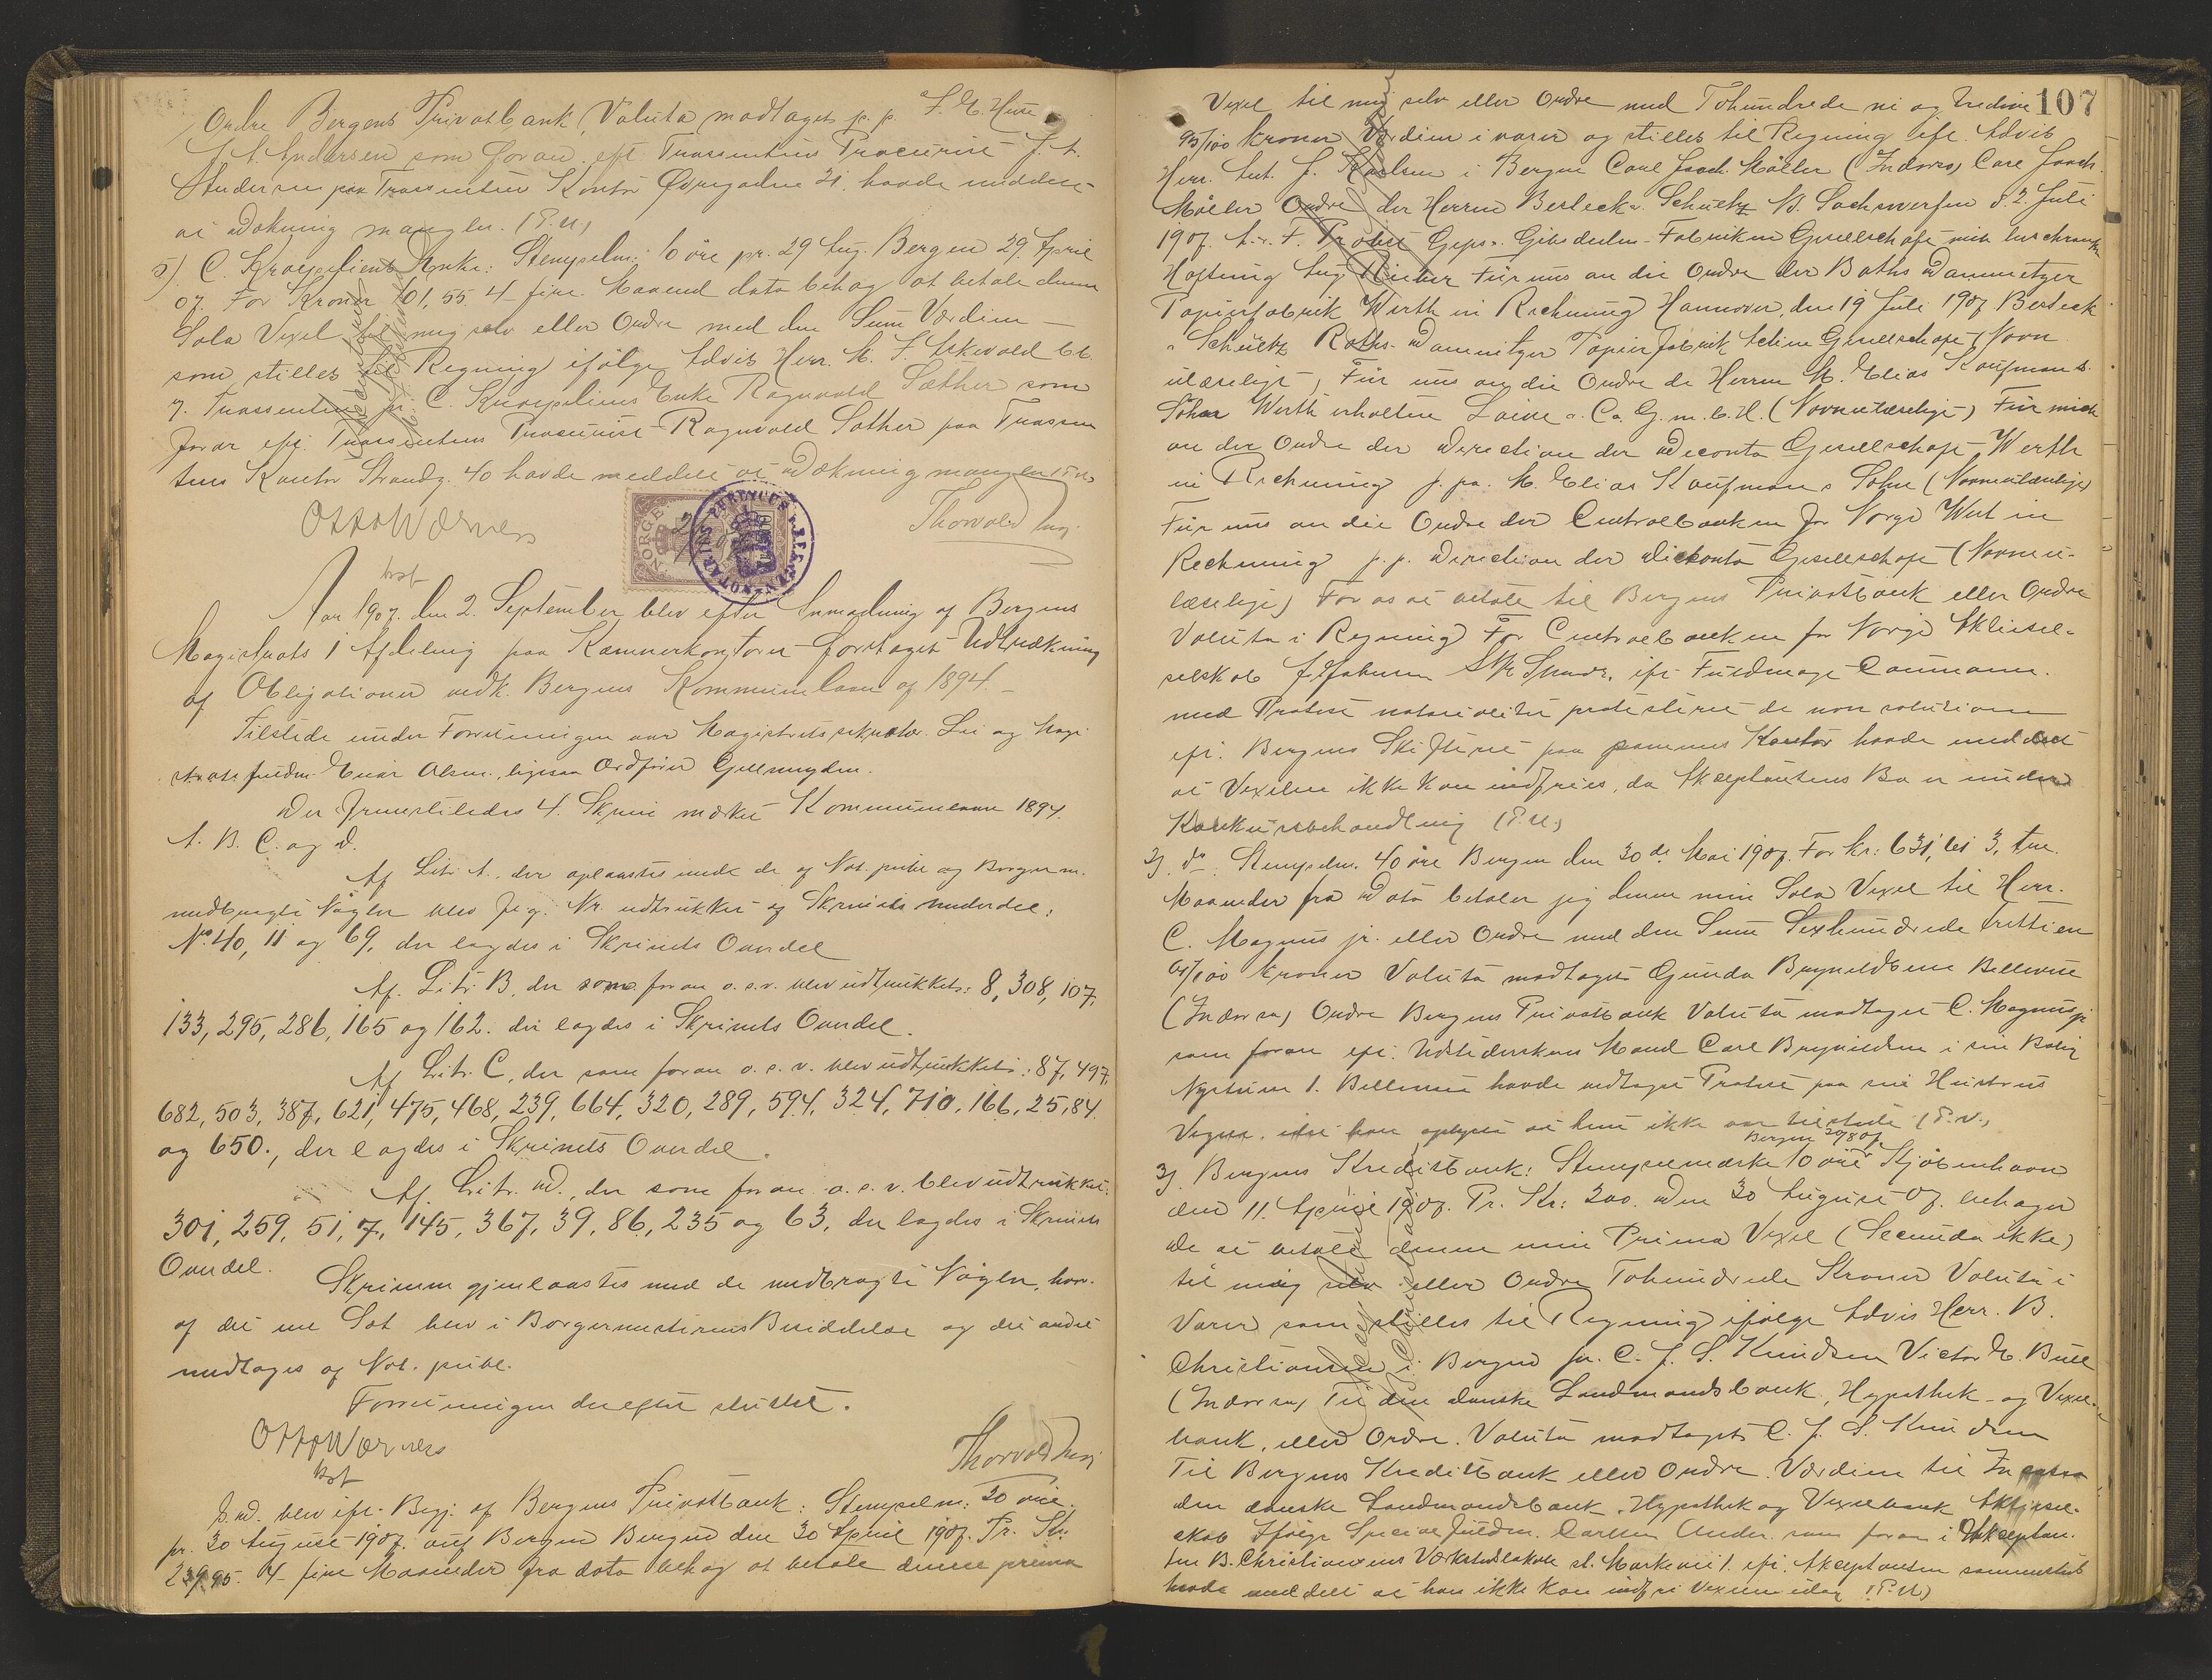 Ordre Bergens Privatbank, Valuta modtaget p. p. F. G.
J. A. Andersen som foran. eft. Trassentens Procurist J. A.
Andersen paa Trassentens Kontor Øvregaden 21. havde meddelt
at Dækning mangler. (P.U.)
5). C. Enke: Stempelm: 10 øre pr. 29 Aug. Bergen 29 April
07. For Kroner 101,55. 4 fire Maaned dato behag at betale denne
Sola Vexel til mig selv eller Ordre med den Sum Værdien
som stilles til Regning ifølge Advis Herr. M. S. Askevold
7. Trassenten pr. C. Enke Ragnvald Sæther som
foran eft. Trassentens Procurist Ragnvald Sæther paa Trassen
tens Kontor Strandg. 40 havde meddelt at Dækning mangler (P.U.)
Otto Wærner
kst
Thorvald
NORGE
NOTARIUS PUBLICUS BERGEN
Aar 1907. den 2. September blev efter Anmodning af Bergens
Magistrats 1 Afdeling paa Kæmnerkontoret foretaget Udtrækning
af Obligationer vedk. Bergens Kommunelaan af 1894.
Tilstede under Forretningen var Magistratssekretær. Lie og Magi
stratsfuldm. Einar Olsen, ligesaa Ordfører Gjellmuyden.
Der fremstilledes 4. Skrin mærket Kommunelaan 1894.
A. B. C. og D.
Af Litr. A., der oplaastes med de af Not. publ. og Borgerm.
medbragte Nøgler blev flg. Nr. udtrukket af Skrinets Underdel:
No. 40, 11 og 69, der lagdes i Skrinets Overdel
Af. Litr. B, der som foran o. s. v. blev udtrukket: 8, 308, 107,
133, 295, 286, 165 og 162. der lagdes i Skrinets Overdel.
Af Litr. C, der som foran o. s. v. blev udtrukket: 87, 497,
682, 503, 387, 621, 475, 468, 239, 664, 320, 289, 594, 324, 710, 166, 25, 84
og 650., der lagdes i Skrinets Overdel.
Af. Litr. D., der som foran o. s. v. blev udtrukket:
301, 259, 51, 7, 145, 367, 39, 86, 235 og 63, der lagdes i Skrinets
Overdel.
Skrinene gjenlaastes med de medbragte Nøgler, hvor-
af det ene Sæt blev i Borgermesterens Besiddelse og det andet
medtages af Not. publ.
Forretningen derefter sluttet.
Otto Wærner
kst
Thorvald
S.D. blev eft. Begj. af Bergens Privatbank: Stempelm: 20 øre.
pr. 30 August 1907. auf Bergen Bergen den 30 April 1907. Pr. Kr:
239.95. 4 fire Maaneder fra dato behag at betale denne prima
107
Vexel til mig selv eller Ordre med Tohundrede ni og tredive
95/100 Kroner Værdien i varer og stilles til Regning eft. Advis
Herr. Ant. J. Karlsen i Bergen Carl Joach. Møller (Indorso) Carl Joach.
Møller Ordre der Herren Berleck & Schuetz Nd. Sachswerfen d. 2 Juli
1907. A. & F. Probst Gips & Gibsdielen-Fabriken Gesellschaft mit beschrænkt
Haftung Aug Für uns an die Ordre der Raths Damnitzer
Papierfabrik Werth in Rechnung Hannover, den 19 Juli 1907 Berleck
& Schuetz Raths-Damnitzer Papierfabrik Actien Gesellschaft (Navn
ulæseligt) Für uns an die Ordre de Herren M. Elias Kaufmann &
Sohn Werth erhalten Laine & Co. G. m. b. H. (Navn ulæseligt) Für mich
an der Ordre der Direction der Disconto Gesellschaft Werth
in Rechnung p. pa. M. Elias Kaufmann & Sohn (Navn ulæseligt)
Für uns an die Ordre der Centralbanken for Norge Wert in
Rechnung p. p. Direction der Diskonto Gesellschaft (Navn u-
læselige) For os at betale til Bergens Privatbank eller Ordre
Valuta i Regning For Centralbanken for Norge Aktiesel-
selskab eft. Fuldmagt
med Protest notarialiter protesteret de non solutione
eft. Bergens Skifteret paa sammes Kontor havde meddelt
at Vexelen ikke kan indfries, da Akseptantens Bo er under
Konkursbehandling (P.U.)
2). do. Stempelm. 40 øre Bergen den 30de Mai 1907. For kr: 631,61 3, tre
Maaneder fra Dato betaler jeg denne min Sola Vexel til Herr.
C. Magnus jr. eller Ordre med den Sum Sexhundrede trettien
61/100 Kroner Valuta modtaget Gunda Brynildsen Bellevue
(Indorso) Ordre Bergens Privatbank Valuta modtaget C. Magnus jr
som foran eft. Udstederskens Mand Carl Brynildsen i sin Bolig
1. Bellevue havde vedtaget Protest paa sin Hustrus
Vegne. idet han oplyste at hun ikke var tilstede (P.U.)
Bergen 20/8 07.
3). Bergens Kreditbank: Stempelmærke 10 øre Kjøbenhavn
den 11. April 1907. Pr. Kr: 200. Den 30 August 07. behager
De at betale denne min Prima Vexel (Secunda ikke)
til mig selv eller Ordre Tohundrede Kroner Valuta i
Varer som stilles til Regning ifølge Advis Herr. B.
Christiansen i Bergen pr. C. J. S. Knudsen Victor E. Bull
(Indorso) Til den danske Landmandsbank, Hypothek- og Vexel-
bank, eller Ordre. Valuta modtaget C. J. S. Knudsen
Til Bergens Kreditbank eller Ordre. Værdien til Incasso
den danske Landmandsbank. Hypothek og Vexelbank Aktiesel-
skab Ifølge Special fuldm. Carlsen Ander. som foran i Akseptan-
ten B. Christiansens Værkstedslokale st. Markevei 1. eft. Akseptanten sammesteds
havde meddelt at han ikke kan indfri Vexelen idag (P.U.)